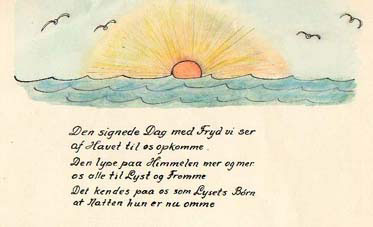 Den signede Dag med Fryd vi ser
af Havet til os opkomme.
Den lyse paa Himmelen mer og mer
os alle til Lyst og Fromme
Det kendes paa os som Lysets Børn
at Natten hun er nu omme